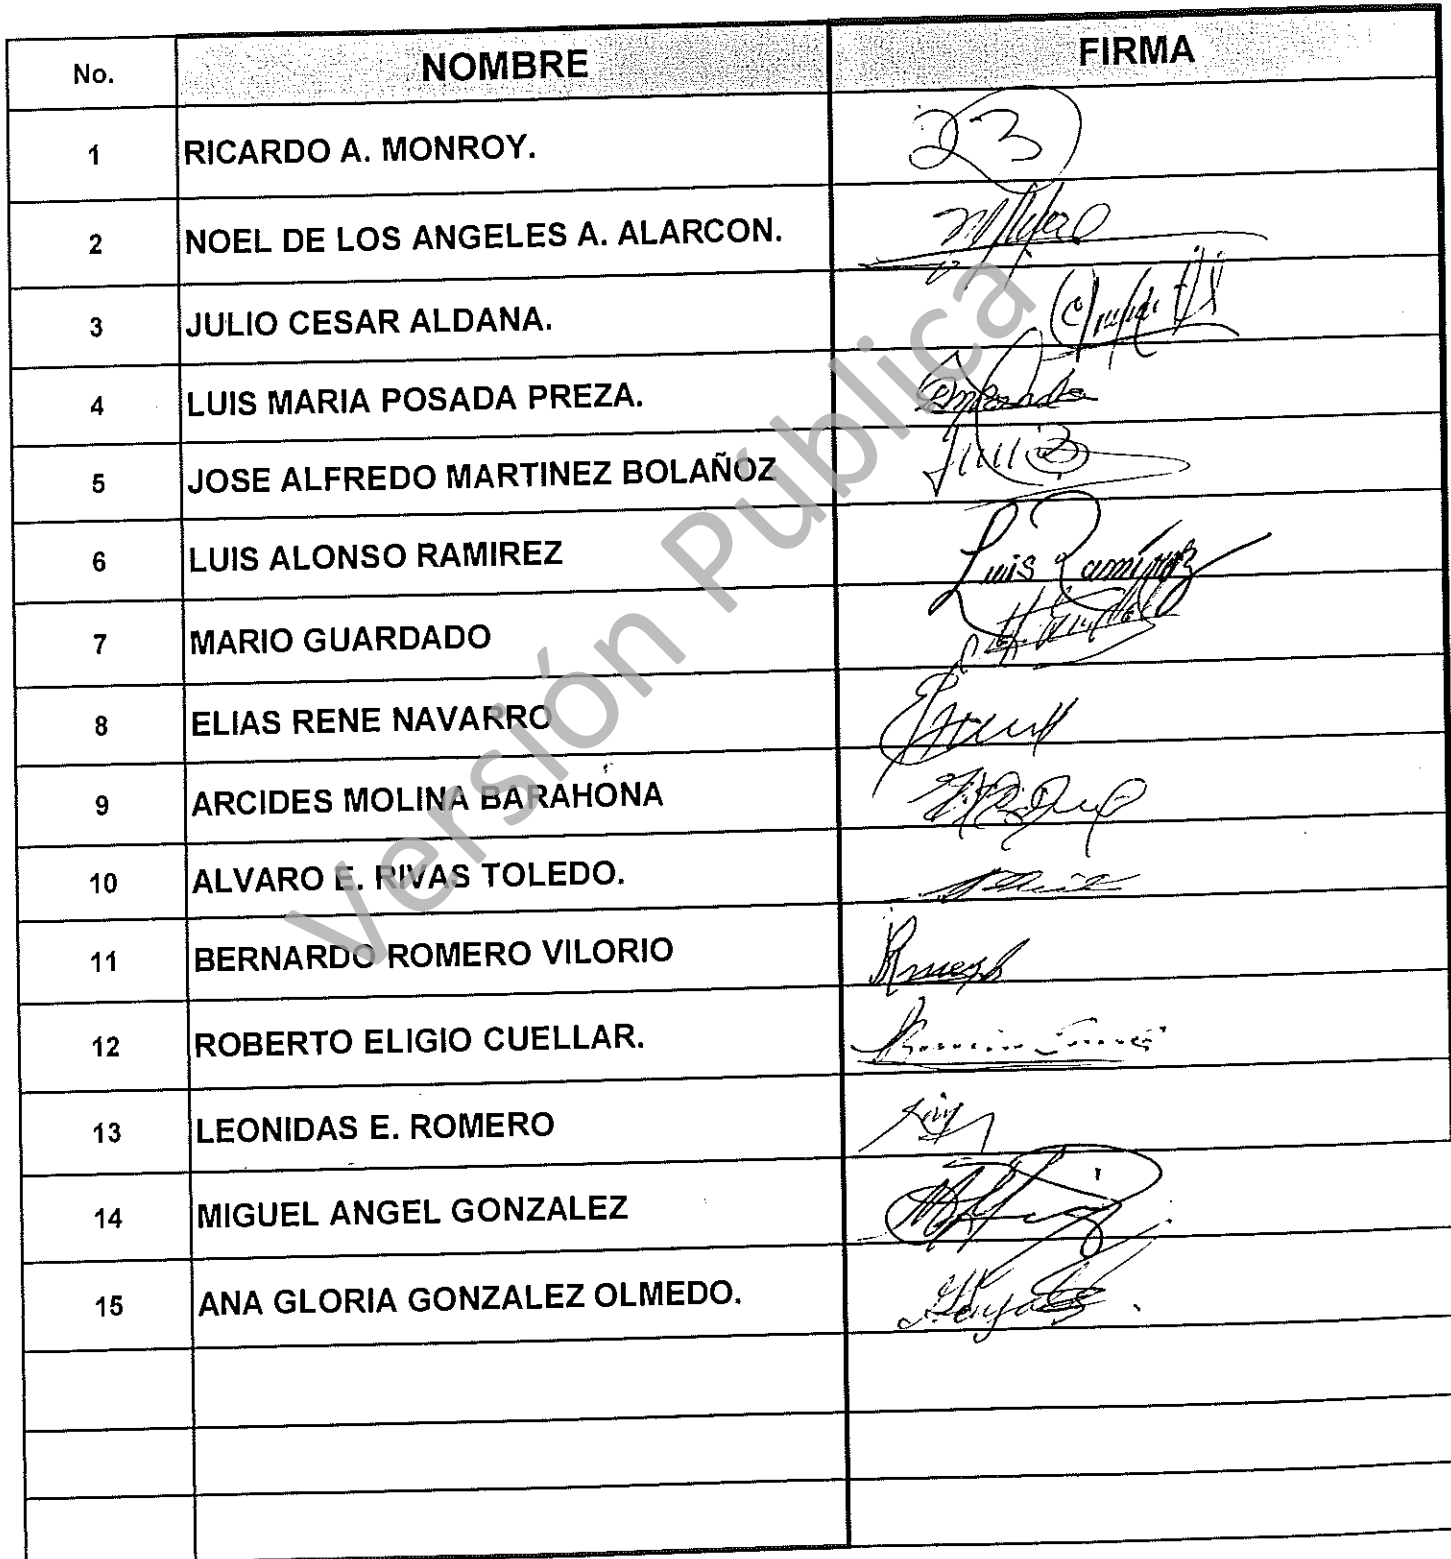 No. NOMBRE FIRMA
1 RICARDO A. MONROY.
2 NOEL DE LOS ANGELES A. ALARCON.
3 JULIO CESAR ALDANA.
4 LUIS MARIA POSADA PREZA.
5 JOSE ALFREDO MARTINEZ BOLAÑOZ
6 LUIS ALONSO RAMIREZ Luis Ramírez
7 MARIO GUARDADO
8 ELIAS RENE NAVARRO
9 ARCIDES MOLINA BARAHONA
10 ALVARO E. RIVAS TOLEDO.
11 BERNARDO ROMERO VILORIO
12 ROBERTO ELIGIO CUELLAR.
13 LEONIDAS E. ROMERO
14 MIGUEL ANGEL GONZALEZ
15 ANA GLORIA GONZALEZ OLMEDO.
Versión Pública